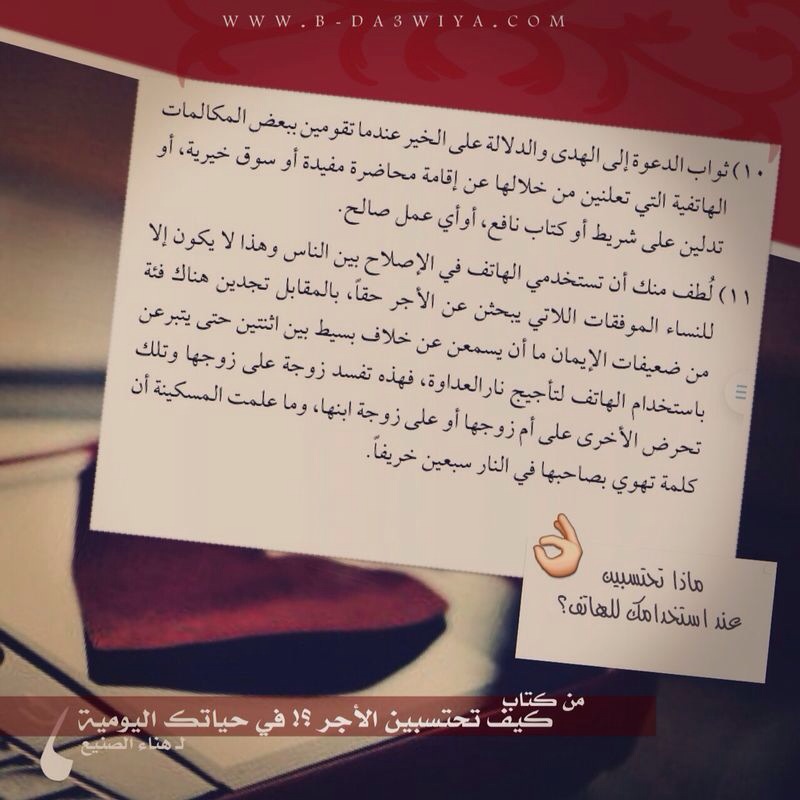 WWW.B-DA3WIYA.COM
١٠) ثواب الدعوة إلى الهدى والدلالة على الخير عندما تقومين ببعض المكالمات
الهاتفية التي تعلنين من خلالها عن إقامة محاضرة مفيدة أو سوق خيرية، أو
تدلين على شريط أو كتاب نافع، أوأي عمل صالح.
١١) لُطف منك أن تستخدمي الهاتف في الإصلاح بين الناس وهذا لا يكون إلا
للنساء الموفقات اللاتي يبحثن عن الأجر حقاً، بالمقابل تجدين هناك فئة
من ضعيفات الإيمان ما أن يسمعن عن خلاف بسيط بين اثنتين حتى يتبرعن
باستخدام الهاتف لتأجيج نارالعداوة، فهذه تفسد زوجة على زوجها وتلك
تحرض الأخرى على أم زوجها أو على زوجة ابنها، وما علمت المسكينة أن
كلمة تهوي بصاحبها في النار سبعين خريفاً.
ماذا تحتسبين
عند استخدامك للهاتف؟
من كتاب
كيف تحتسبين الأجر ؟! في حياتك اليومية
لـ هناء الصنيع